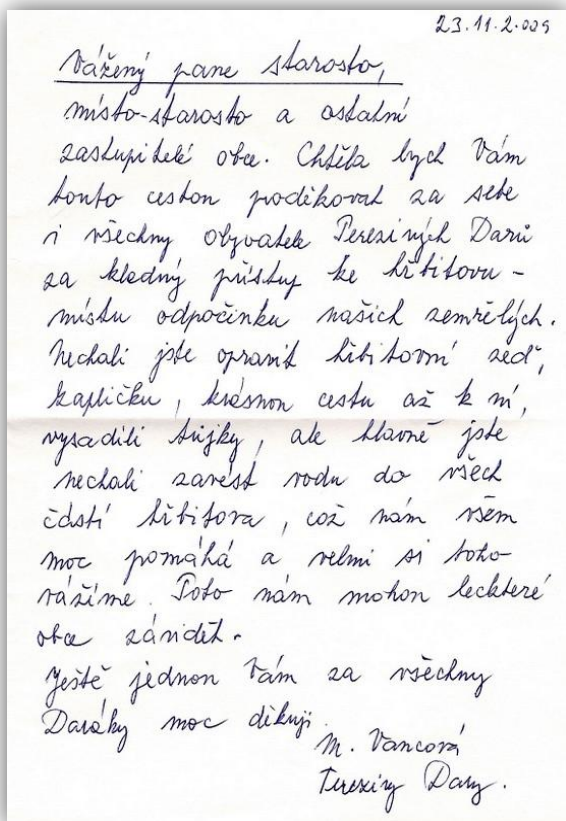 23.11.2.009
Vážený pane starosto,
místo-starosto a ostatní
zastupitelé obce. Chtěla bych Vám
touto cestou poděkovat za sebe
i všechny obyvatele Tereziných Darů
za kladný přístup ke hřbitovu -
místu odpočinku našich zemřelých.
Nechali jste opravit hřbitovní zeď,
kapličku, krásnou cestu až k ní,
vysadili tújky, ale hlavně jste
nechali zavést vodu do všech
částí hřbitova, což nám všem
moc pomáhá a velmi si toho
vážíme. Toto nám mohou leckteré
obce závidět.
Ještě jednou Vám za všechny
Daráky moc děkuji
M. Vancová
Tereziny Dary.